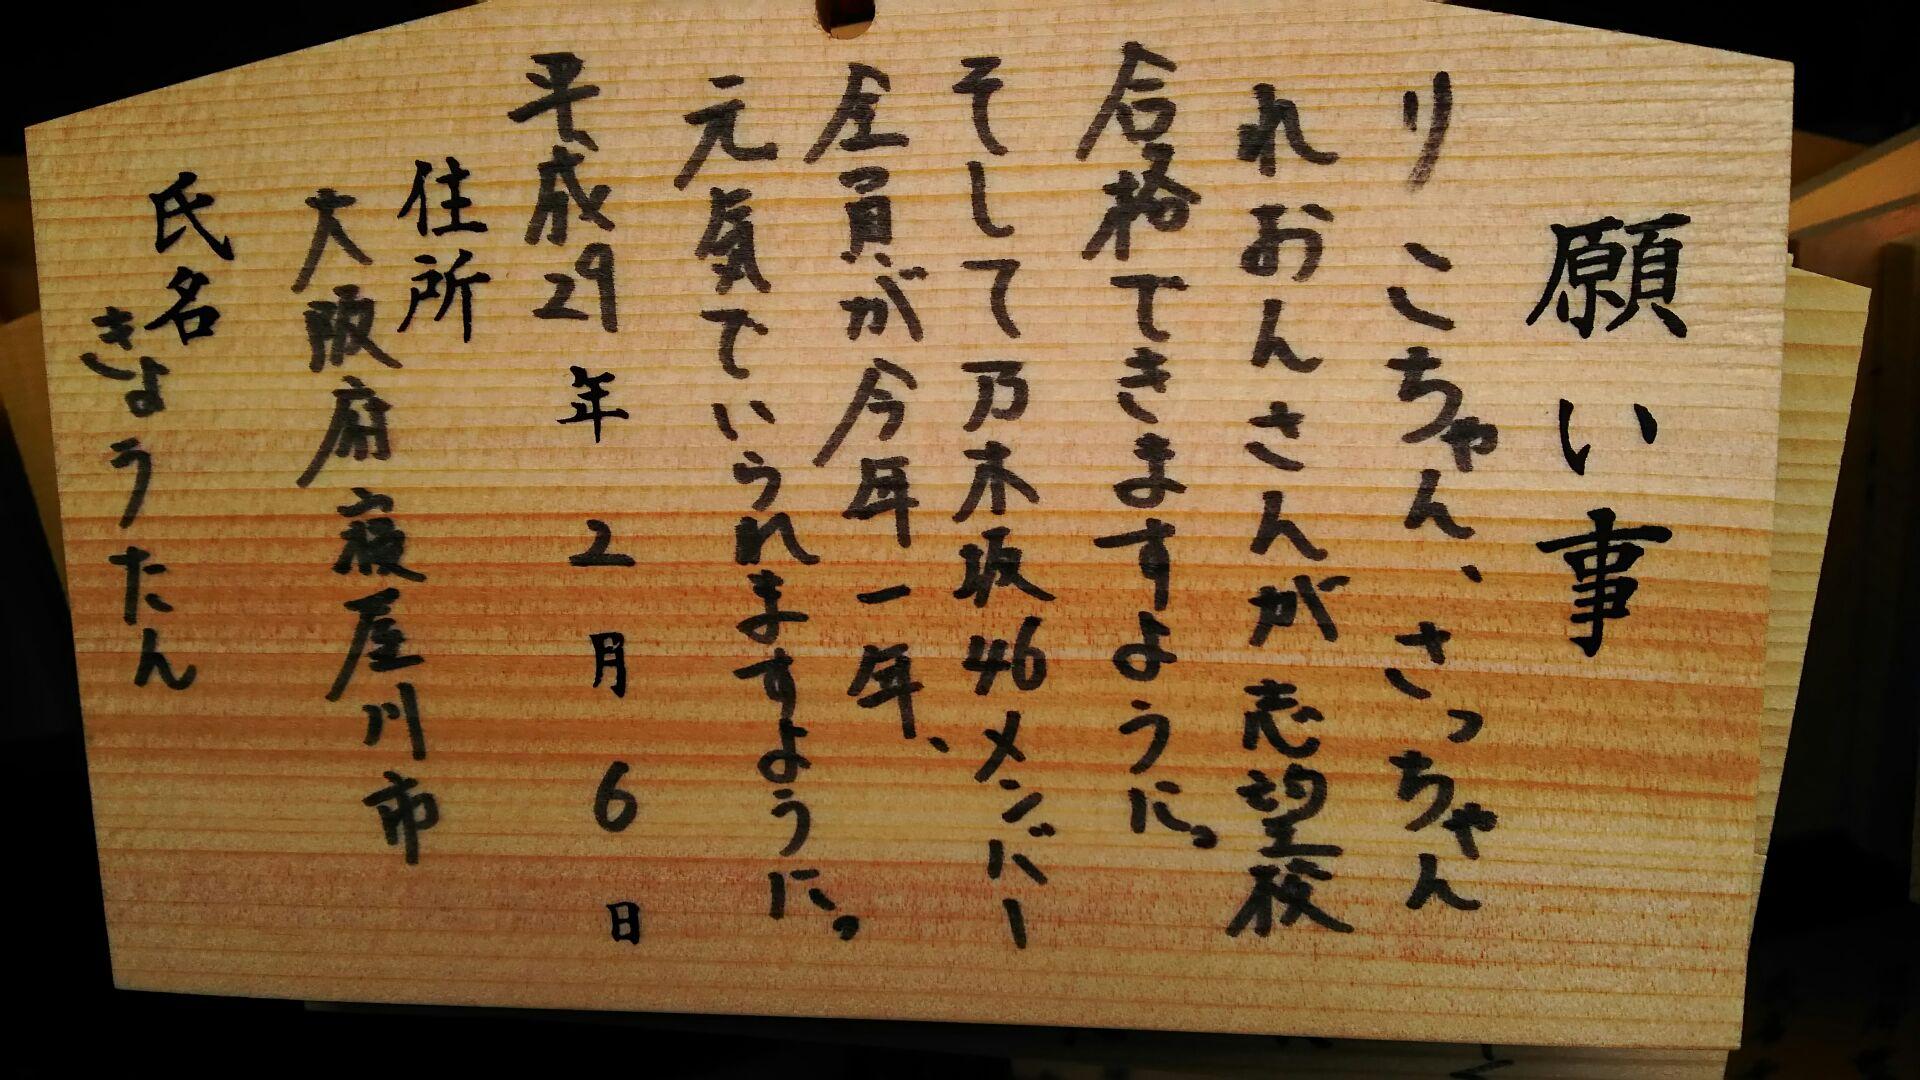 願い事
りこちゃん、さっちゃん
れおんさんが志望校
合格できますように。
そして乃木坂46メンバー
全員が今年一年、
元気でいられますように。
平成29年2月6日
住所
大阪府寝屋川市
氏名
きょうたん